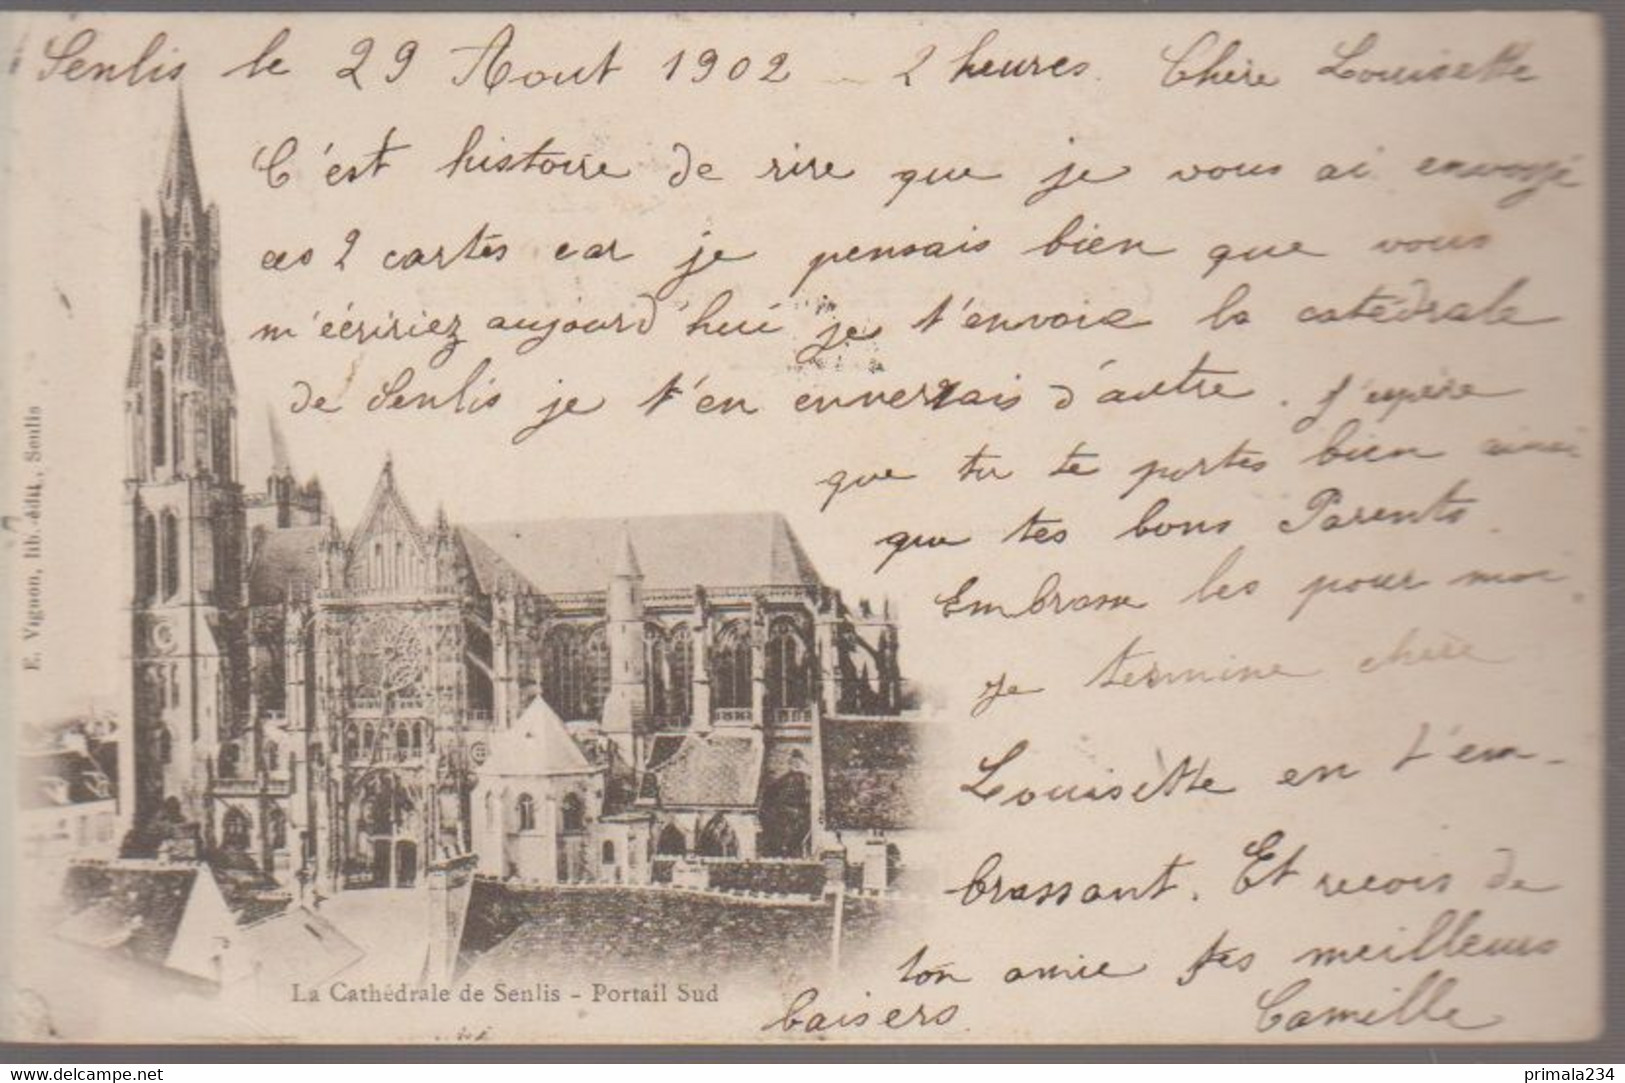 Senlis le 29 Aout 1902 - 2 heures. Chère Louisette
C'est histoire de rire que je vous ai envoyé
ces 2 cartes car je pensais bien que vous
m'écririez aujourd'hui je t'envoie la catédrale
de Senlis je t'en enverrais d'autre. J'espère
que tu te portes bien ainsi
que tes bons Parents.
Embrasse les pour moi
je termine chère
Louisette en t'em-
brassant. Et reçois de
ton amie tes meilleurs
baisers. Camille
E. Vignon, lib.-édit., Senlis
La Cathédrale de Senlis - Portail Sud
www.delcampe.net
primala234